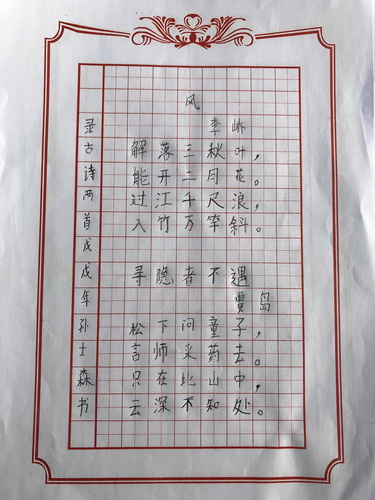 风
李峤
解落三秋叶，
能开二月花。
过江千尺浪，
入竹万竿斜。
寻隐者不遇
贾岛
松下问童子，
言师采药去。
只在此山中，
云深不知处。
录古诗两首戊戌年孙士森书